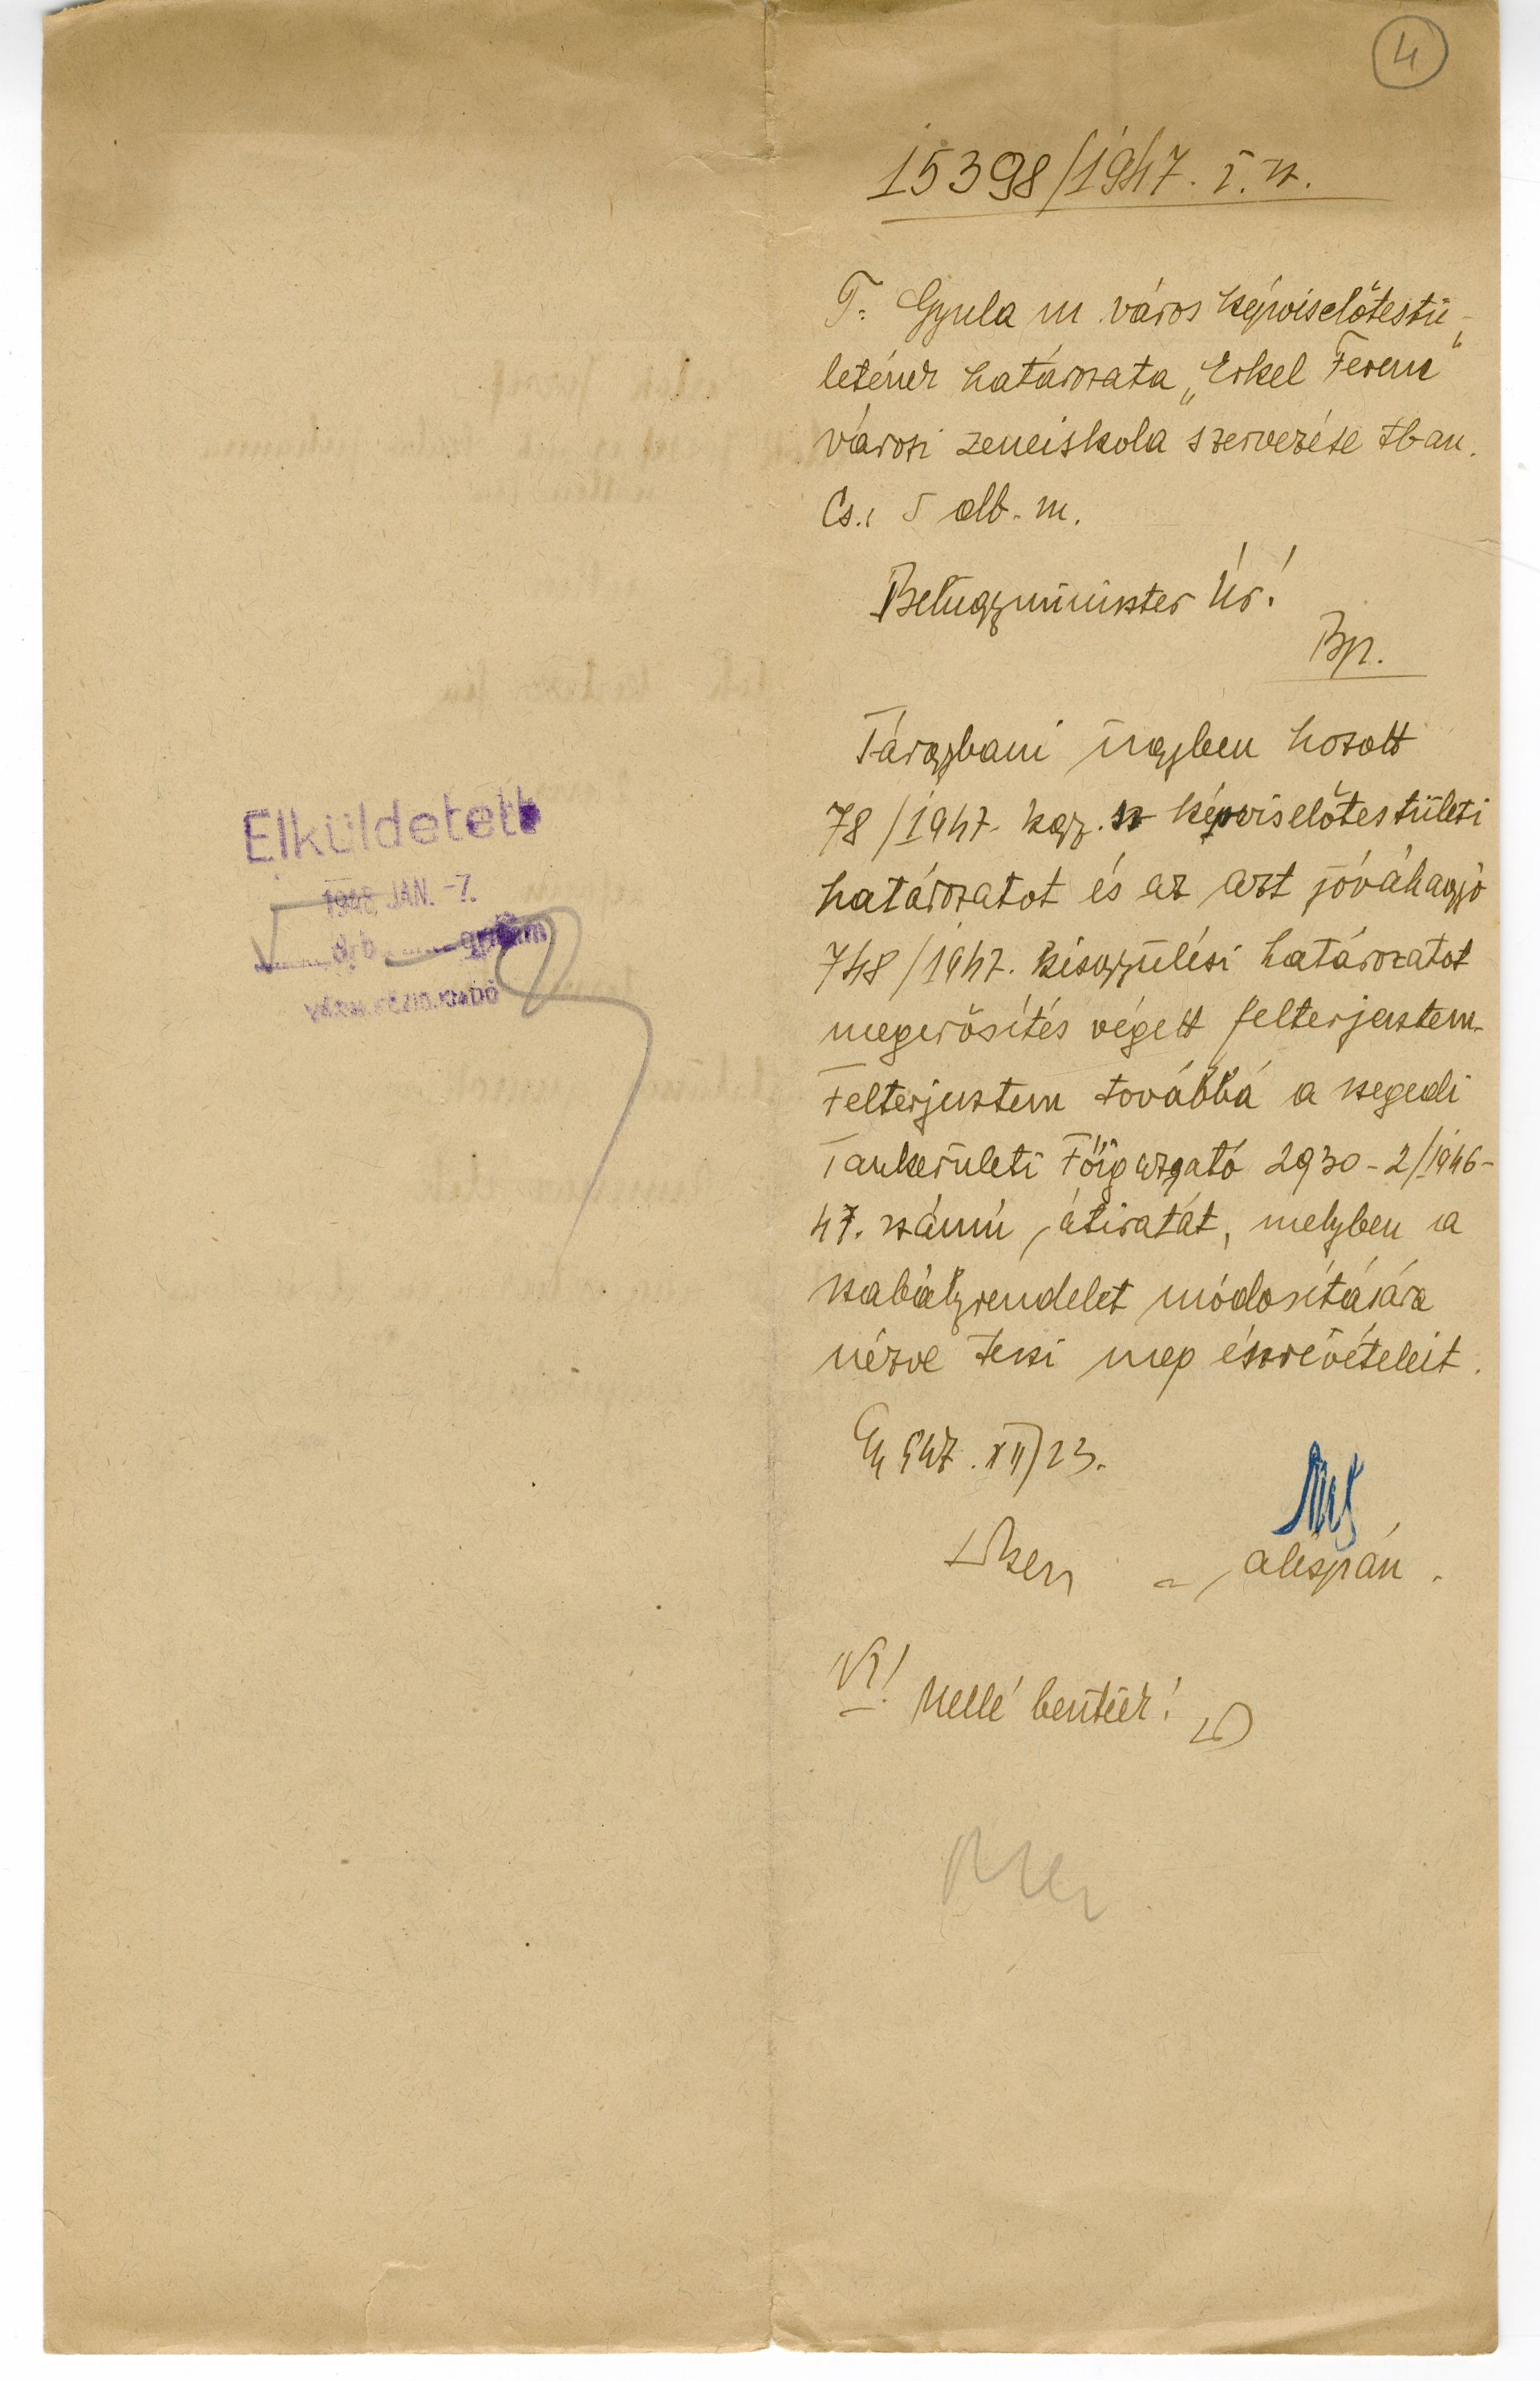 4
15398/1947. I. sz.
T: Gyula m. város képviselőtestü-
letének határozata „Erkel Ferenc"
városi zeneiskola szervezése tban.
Cs.: 5 db. m.
Belügyminiszter Úr!
Bp.
Tárgybani ügyben hozott
78/1947. kgy. sz képviselőtestületi
határozatot és az azt jóváhagyó
748/1947. kisgyűlési határozatot
megerősítés végett felterjesztem.
Felterjesztem továbbá a szegedi
Tankerületi Főigazgató 2930-2/1946-
47. számú átiratát, melyben a
szabályrendelet módosítására
nézve teszi meg észrevételeit.
Gy, 947. XII/23.
alispán.
Mellé bentiek!
Elküldetett
1948 JAN. -7.
drb